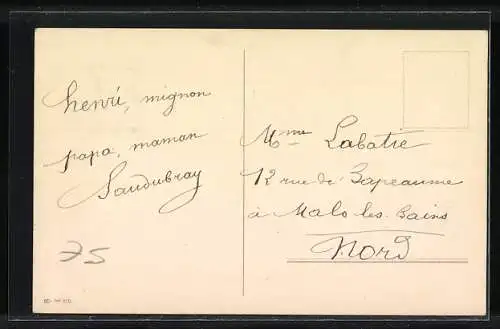 henri, mignon
papa, maman
Saudubray
75
Mme Labatie
12 rue de Bapeaume
à Malo les Bains
Nord